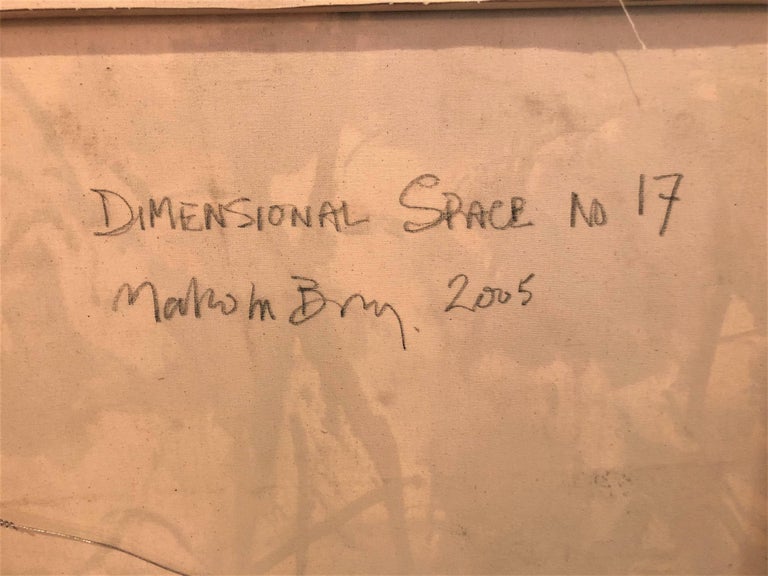 DIMENSIONAL SPACE NO 17
Malcolm Bray. 2005